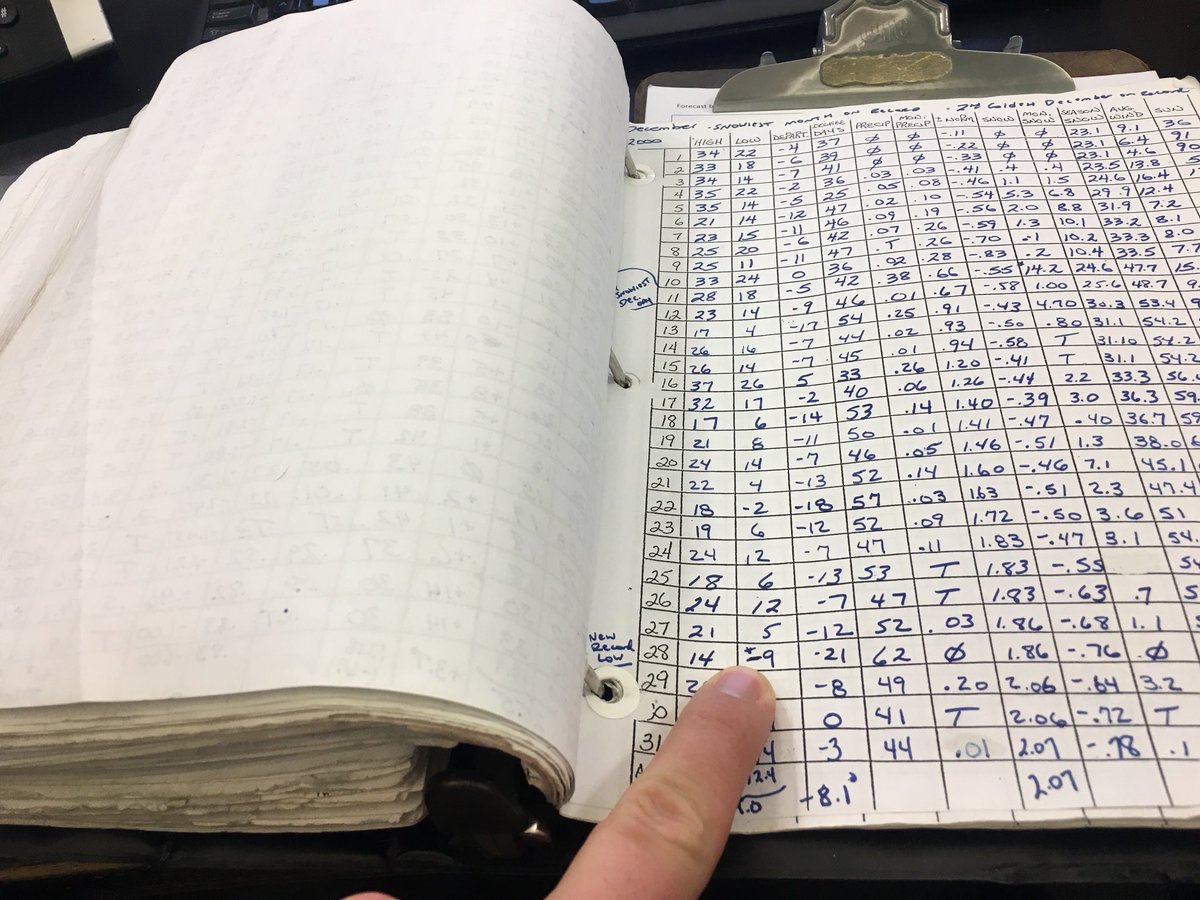 Forecast b
December - SNOWIEST MONTH ON RECORD - 2nd Coldest December on Record
2000 HIGH LOW DEPART. DEGREE DAYS PRECIP MON. PRECIP ± NORM SNOW MON. SNOW SEASON SNOW AVG WIND SUN
1 34 22 -4 37 Ø Ø -.11 Ø Ø 23.1 9.1 36
2 33 18 -6 39 Ø Ø -.22 Ø Ø 23.1 6.4 91
3 34 14 -7 41 Ø Ø -.33 Ø Ø 23.1 4.6 90
4 35 22 -2 36 .03 .03 -.41 .4 .4 23.5 13.8
5 35 14 -5 25 .05 .08 -.46 1.1 1.5 24.6 16.4
6 21 14 -12 47 .02 .10 -.54 5.3 6.8 29.9 12.4
7 23 15 -11 46 .09 .19 -.56 2.0 8.8 31.9 7.2
8 25 20 -6 42 .07 .26 -.59 1.3 10.1 33.2 8.1
9 25 11 -11 47 .T .26 -.70 .1 10.2 33.3 8.0
10 33 24 0 36 .02 .28 -.83 .2 10.4 33.5 7.7
SNOWIEST Dec. DAY
11 28 18 -5 42 .38 .66 -.55 *14.2 24.6 47.7 15.
12 23 14 -9 46 .01 .67 -.58 1.00 25.6 48.7 9
13 17 4 -17 54 .25 .91 -.43 4.70 30.3 53.4 9
14 26 16 -7 44 .02 .93 -.50 .80 31.1 54.2
15 26 14 -7 45 .01 .94 -.58 T 31.10 54.2
16 37 26 5 33 .26 1.20 -.41 T 31.1 54.2
17 32 17 -2 40 .06 1.26 -.44 2.2 33.3 56.
18 17 6 -14 53 .14 1.40 -.39 3.0 36.3 59.
19 21 8 -11 50 .01 1.41 -.47 .40 36.7 59
20 24 14 -7 46 .05 1.46 -.51 1.3 38.0
21 22 4 -13 52 .14 1.60 -.46 7.1 45.1
22 18 -2 -18 57 .03 163 -.51 2.3 47.4
23 19 6 -12 52 .09 1.72 -.50 3.6 51
24 24 12 -7 47 .11 1.83 -.47 3.1 54.
25 18 6 -13 53 T 1.83 -.55 54
26 24 12 -7 47 T 1.83 -.63 .7
27 21 5 -12 52 .03 1.86 -.68 1.1
New Record Low
28 14 *-9 -21 62 Ø 1.86 -.76 .Ø
29 2 -8 49 .20 2.06 -.64 3.2
30 0 41 T 2.06 -.72 T
31 4 -3 44 .01 2.07 -.78 .1
12.4 -8.1 2.07